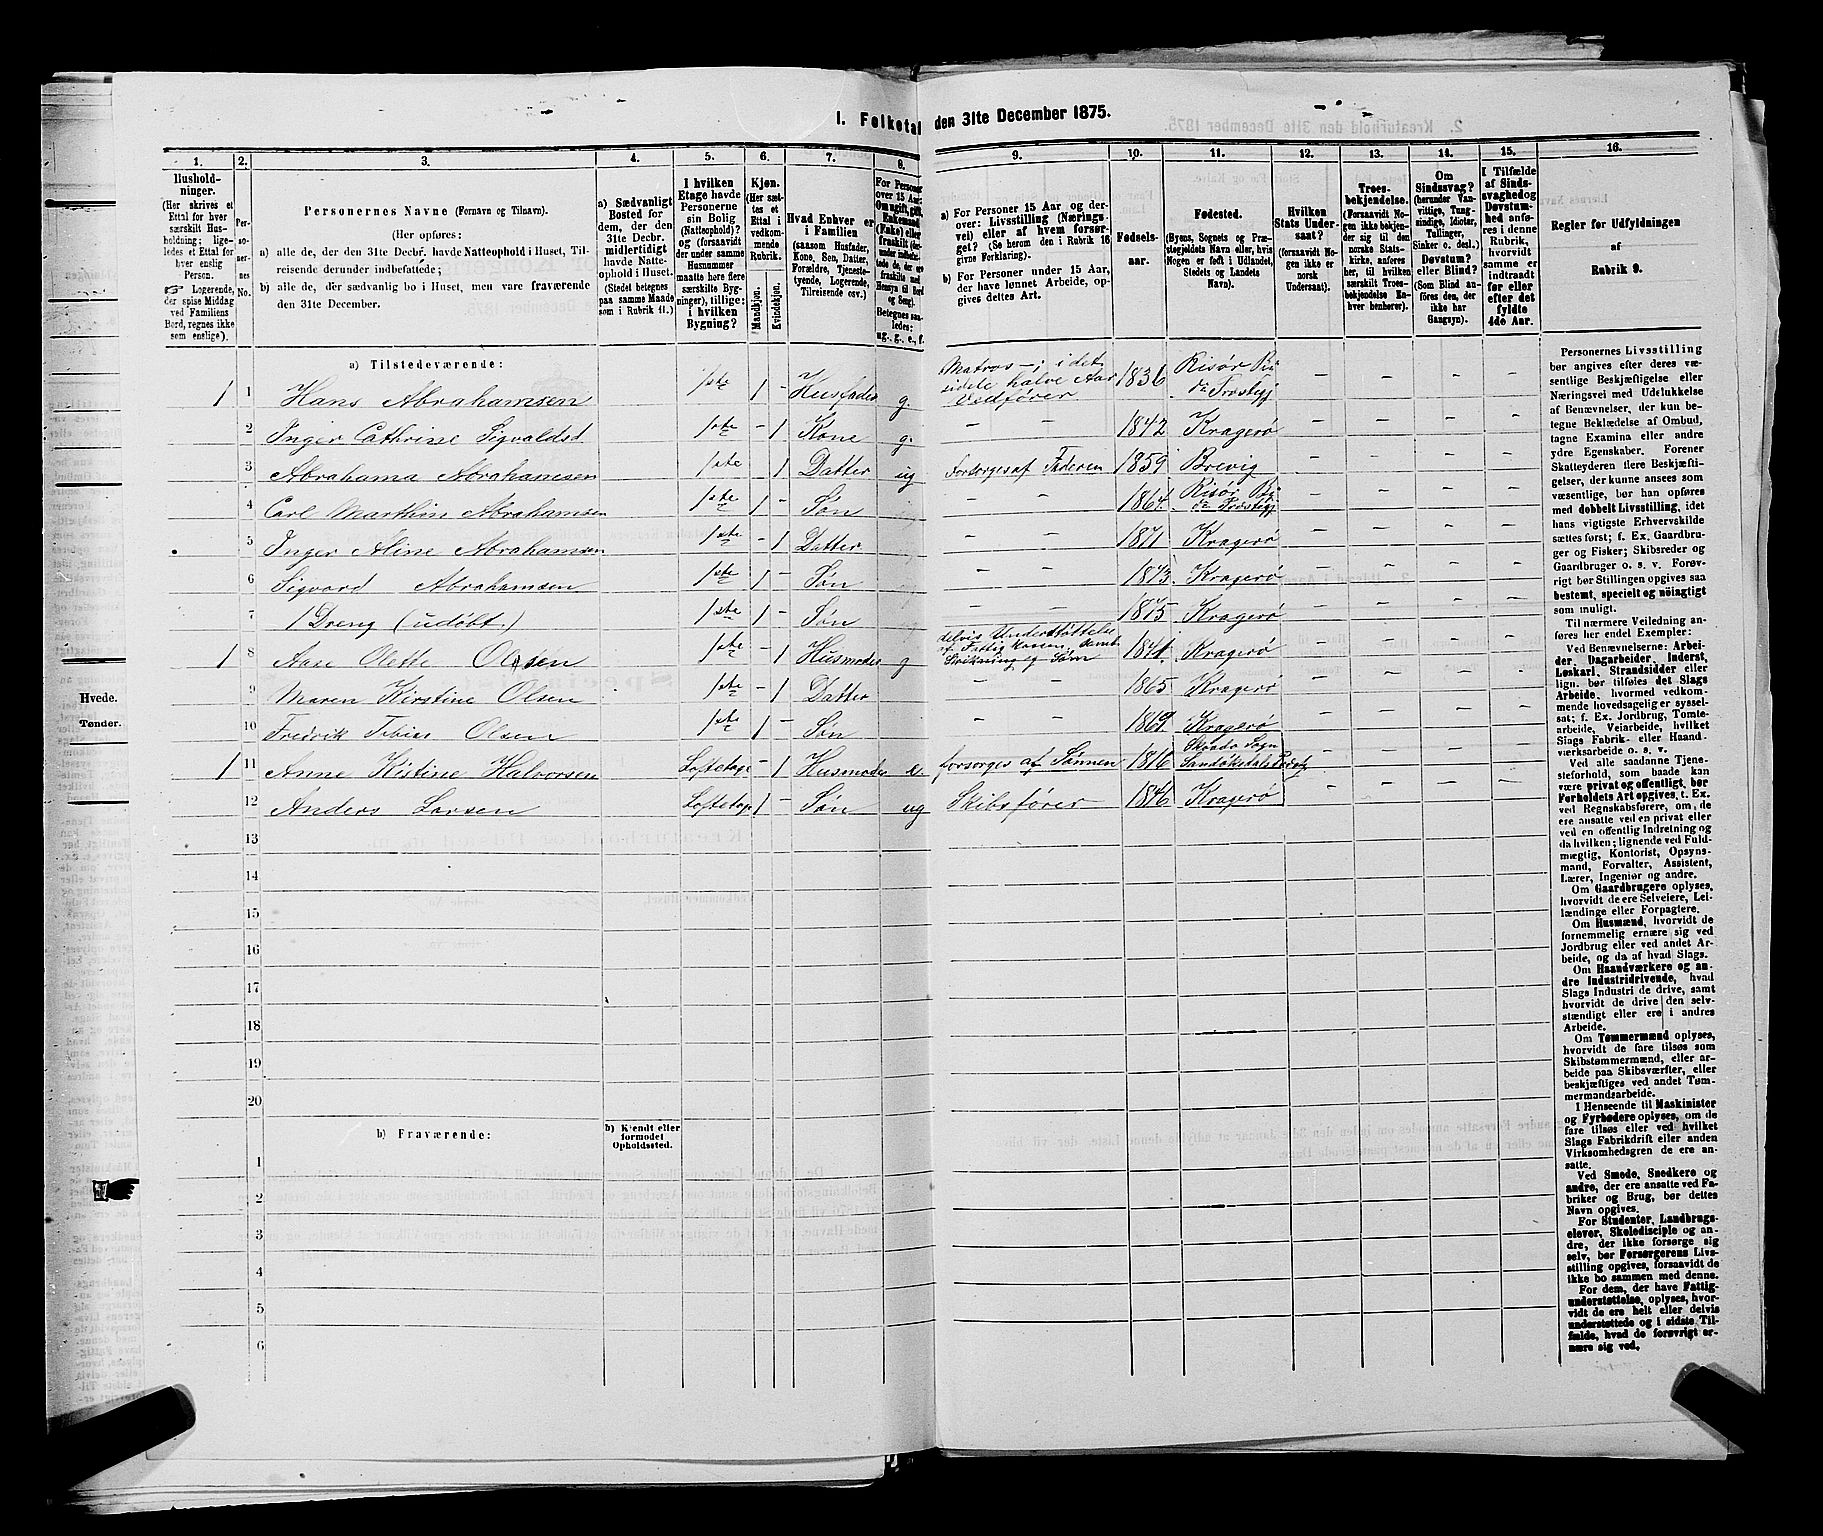 1. Folketal den 31te December 1875.
1. 2. 3. 4. 5. 6. 7. 8. 9. 10. 11. 12. 13. 14. 15. 16.
Hushold-
ninger.
(Her skrives et
Ettal for hver
særskilt Hus-
holdning; lige-
ledes et Ettal for
hver enslig
Person.
☞ Logerende,
der spise Middag
ved Familiens
Bord, regnes ikke
som enslige).
Per-
so-
ner-
nes
No.
Personernes Navne (Fornavn og Tilnavn).
(Her opføres:
a) alle de, der den 31te Decbr. havde Natteophold i Huset, Til-
reisende derunder indbefattede;
b) alle de, der sædvanlig bo i Huset, men vare fraværende
den 31te December.
a) Sædvanligt
Bosted for
dem, der den
31te Decbr.
midlertidigt
havde Natte-
ophold i Huset.
(Stedet betegnes
paa samme Maade
som i Rubrik 11.)
I hvilken
Etage havde
Personerne
sin Bolig
(Natteophold)?
og (forsaavidt
der under samme
Husnummer
maatte høre flere
særskilte Byg-
ninger), tillige:
i hvilken
Bygning?
Kjøn.
(Her sæt-
tes et
Ettal i
vedkom-
mende
Rubrik.
Mandkjøn.
Kvindekjøn.
Hvad Enhver er
i Familien
(saasom Husfader,
Kone, Søn, Datter,
Forældre, Tjeneste-
tyende, Logerende,
Tilreisende osv.)
For Personer
over 15 Aar:
Om ugift, gift,
Enkemand
(Enke) eller
fraskilt
Betegnes saa-
ledes:
ug., g., e., f.
a) For Personer 15 Aar og der-
over: Livsstilling (Nærings-
vei) eller af hvem forsør-
get? (Se herom den i Rubrik 16
givne Forklaring).
b) For Personer under 15 Aar,
der have lønnet Arbeide, op-
gives dettes Art.
Fødsels-
aar.
Fødested.
(Byens, Sognets og Præ-
stegjeldets Navn eller, hvis
Nogen er født i Udlandet,
Stedets og Landets
Navn).
Hvilken
Stats Under-
saat?
(forsaavidt No-
gen ikke er
norsk
Undersaat).
Troes-
bekjendelse.
(Forsaavidt No-
gen ikke bekjen-
der sig til den
norske Stats-
kirke, anføres
her, til hvilken
særskilt Troes-
bekjendelse En-
hver henhører).
Om
Sindssvag?
(herunder Van-
vittige, Tung-
sindige, Idioter,
Tullinger,
Sinker o. desl.)
Døvstum?
eller Blind?
(Som Blind an-
føres den, der
ikke har
Gangsyn).
I Tilfælde
af Sinds-
svaghed og
Døvstum-
hed anfø-
res i denne
Rubrik,
hvorvidt
samme er
indtraadt
før eller
efter det
fyldte
4de Aar.
Regler for Udfyldningen
af
Rubrik 9.
a) Tilstedeværende:
1 1 Hans Abrahamsen 1ste 1 - Husfader g. Matros - i det sidste halve Aar Vedfører 1836 Risør
2 Inger Cathrine Sigvaldsd 1ste - 1 Kone g. - - 1842 Kragerø - - - -
3 Abrahama Abrahamsen 1ste - 1 Datter ug Forsørges af Faderen 1859 Brevig - - - -
4 Carl Marthin Abrahamsen 1ste 1 - Søn - - 1864 Risør
5 Inger Aline Abrahamsen 1ste - 1 Datter - - 1871 Kragerø - - - -
6 Sigvard Abrahamsen 1ste 1 - Søn - - 1873 Kragerø - - - -
7 1 Dreng (udøbt.) 1ste 1 - Søn - - 1875 Kragerø - - - -
1 8 Aase Olette Olsen 1ste - 1 Husmoder g delvis Understøttelse af Fattig Kassen, samt Strikning og Søm 1841 Kragerø - - - -
9 Maren Kirstine Olsen 1ste - 1 Datter - - 1865 Kragerø - - - -
10 Fredrik Tobias Olsen 1ste 1 - Søn - - 1869 Kragerø - - - -
1 11 Anne Kistine Halvorsen Loftetage - 1 Husmoder e. forsørges af Sønnen 1816 Skaadø Sogn Sandøkedals - - - -
12 Anders Larsen Loftetage 1 - Søn ug Skibsfører 1846 Kragerø - - - -
13
14
15
16
17
18
19
20
b) Fraværende:
b) Kjendt eller
formodet
Opholdssted.
1
2
3
4
5
6
Personernes Livsstilling
bør angives efter deres væ-
sentlige Beskjæftigelse eller
Næringsvei med Udelukkelse
af Benævnelser, der kun be-
tegne Beklædelse af Ombud,
tagne Examina eller andre
ydre Egenskaber. Forener
Skatteyderen flere Beskjæfti-
gelser, der kunne ansees som
væsentlige, bør han opføres
med dobbelt Livsstilling, idet
hans vigtigste Erhvervskilde
sættes først; f. Ex. Gaardbru-
ger og Fisker; Skibsreder og
Gaardbruger o. s. v. Forøv-
rigt bør Stillingen opgives saa
bestemt, specielt og nöiagtigt
som muligt.
Til nærmere Veiledning an-
føres her endel Exempler:
Ved Benævnelserne: Arbei-
der, Dagarbeider, Inderst,
Løskarl, Strandsidder eller
lign. bør tilføies det Slags
Arbeide, hvormed vedkom-
mende hovedsagelig er syssel-
sat; f. Ex. Jordbrug, Tomte-
arbeide, Veiarbeide, hvilket
Slags Fabrik- eller Haand-
værksarbeide o. s. v.
Ved alle saadanne Tjene-
steforhold, som baade kan
være privat og offentligt, bør
Forholdets Art opgives, t. Ex.
ved Regnskabsførere, om de
ere ansatte ved en privat eller
ved en offentlig Indretning og
da hvilken; lignende ved Fuld-
mægtig, Kontorist, Opsyns-
mand, Forvalter, Assistent,
Lærer, Ingeniør og andre.
Om Gaardbrugere oplyses,
hvorvidt de ere Selveiere, Lei-
lændinge eller Forpagtere.
Om Husmænd, hvorvidt de
fornemmelig ernære sig ved
Jordbrug eller ved andet Ar-
beide, og da af hvad Slags.
Om Haandværkere og an-
dre Industridrivende, hvad
Slags Industri de drive, samt
hvorvidt de drive den selv-
stændigt eller ere i andres
Arbeide.
Om Tømmermænd oplyses,
hvorvidt de fare tilsøs som
Skibstømmermænd, eller ar-
beide paa Skibsværfter, eller
beskjæftiges ved andet Tøm-
mermandsarbeide.
I Henseende til Maskinister
og Fyrbødere oplyses, om de
fare tilsøs eller ved hvilket
Slags Fabrikdrift eller anden
Virksomhedsgren de ere an-
satte.
Ved Smede, Snedkere og
andre, der ere ansatte ved Fa-
briker og Brug, bør dettes
Navn opgives.
For Studenter, Landbrugs-
elever, Skoledisciple og an-
dre, der ikke forsørge sig
selv, bør Forsørgerens Livs-
stilling opgives, forsaavidt de
ikke bo sammen med denne.
For dem, der have Fattig-
understøttelse, oplyses, hvor-
vidt de ere helt eller delvis
understøttede og i sidste Til-
fælde, hvad de forøvrigt er-
nære sig ved.
Hvede.
Tønder.